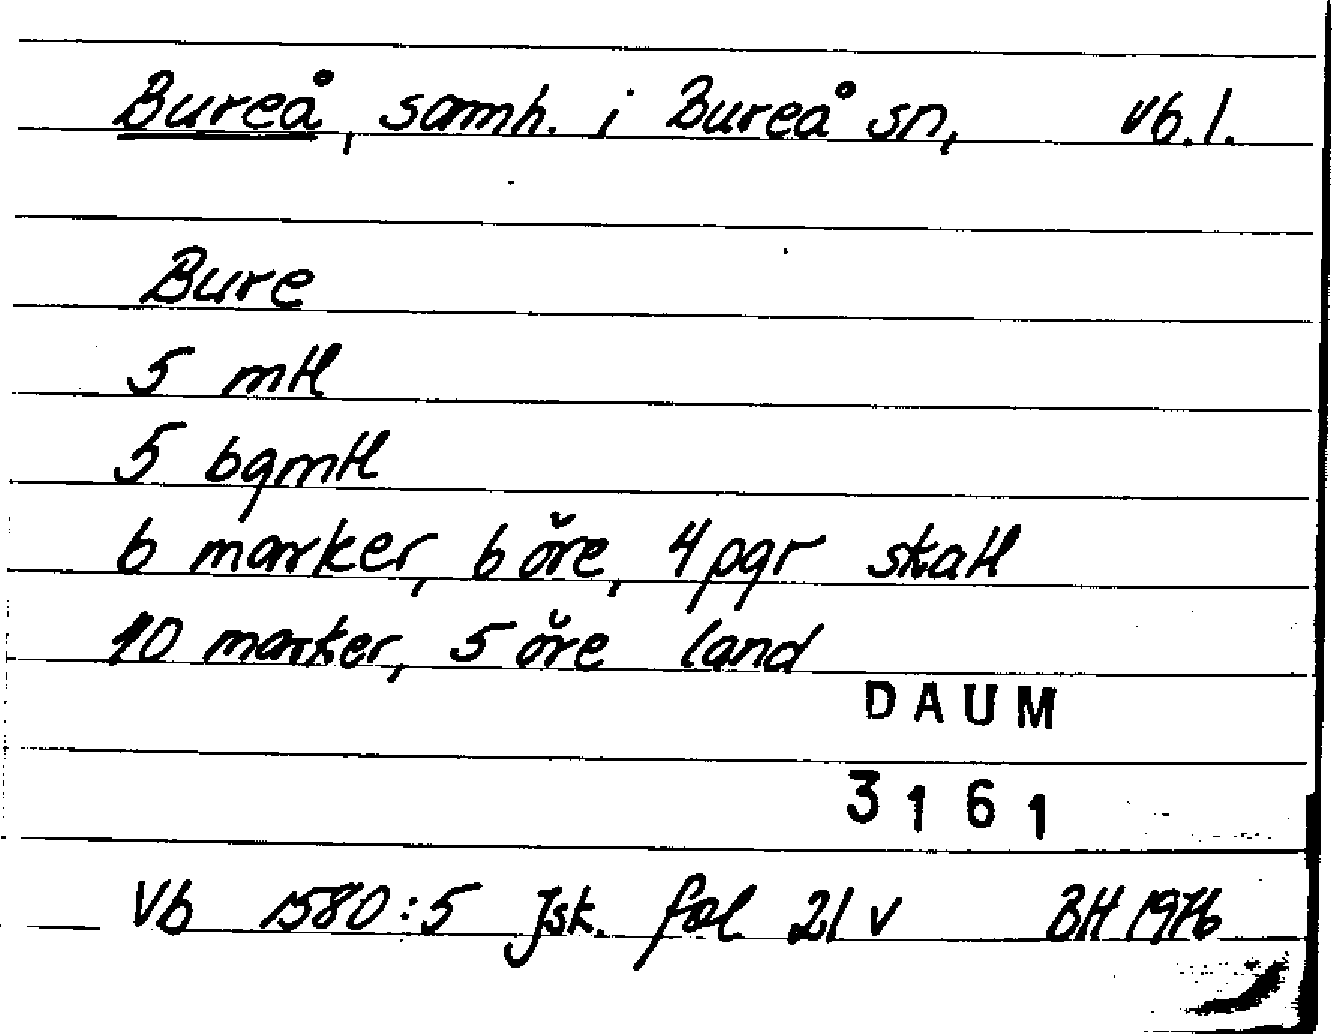 Bureå, samh. i Bureå sn, Vb. l.
Bure
5 mtl
5 bgmtl
6 marker, 6 öre, 4 pgr skatt
10 marker, 5 öre land
DAUM
3161
Vb 1580:5 Jsk. fol. 21 v BH 1976